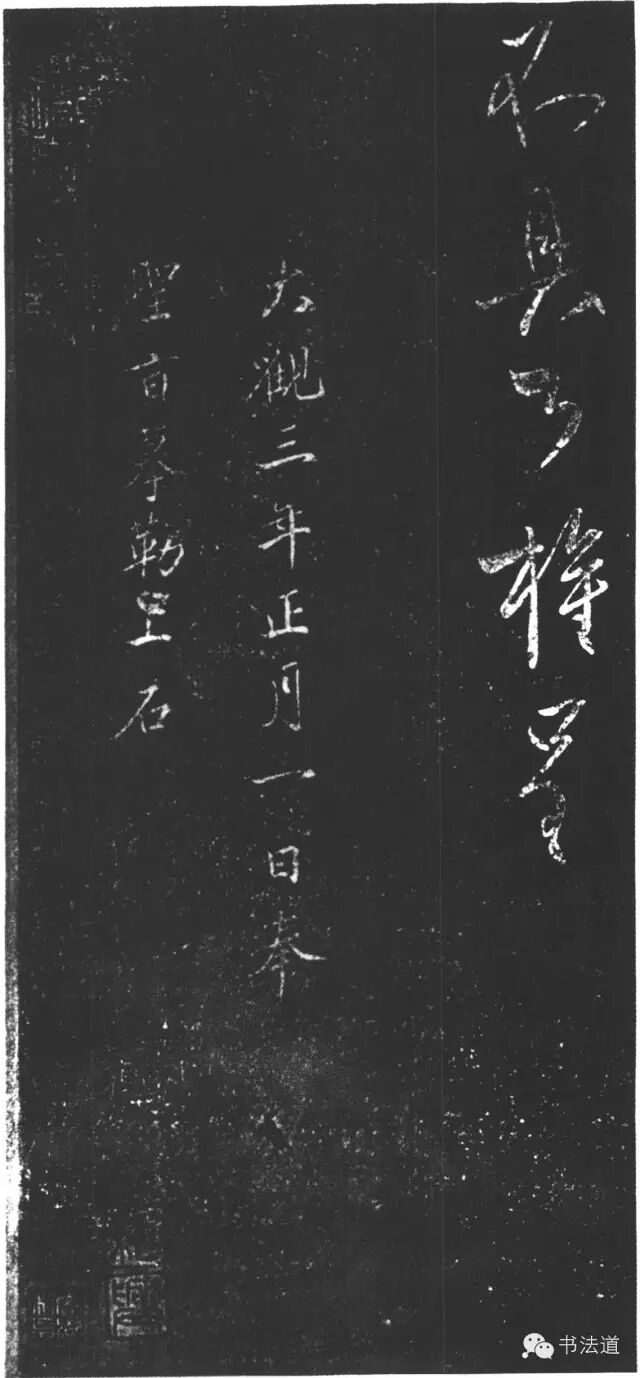 不具權呈
大觀三年正月一日奉
聖旨摹勒上石
书法道